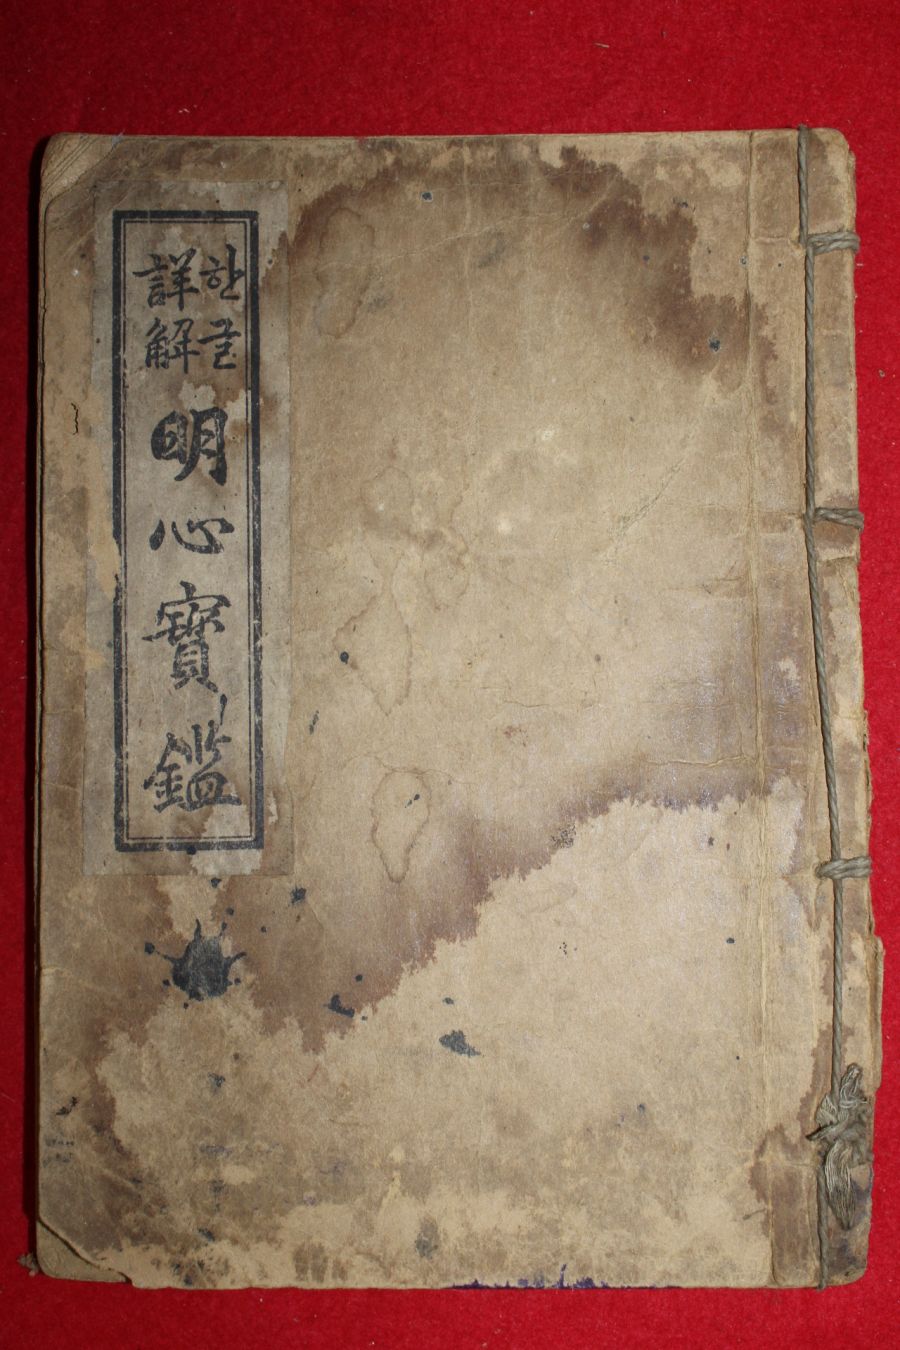 한글
詳解
明心寶鑑